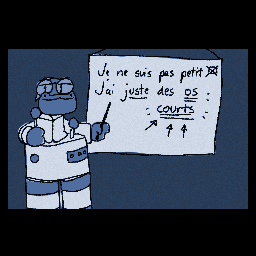 Je ne suis pas petit
J'ai juste des os
courts